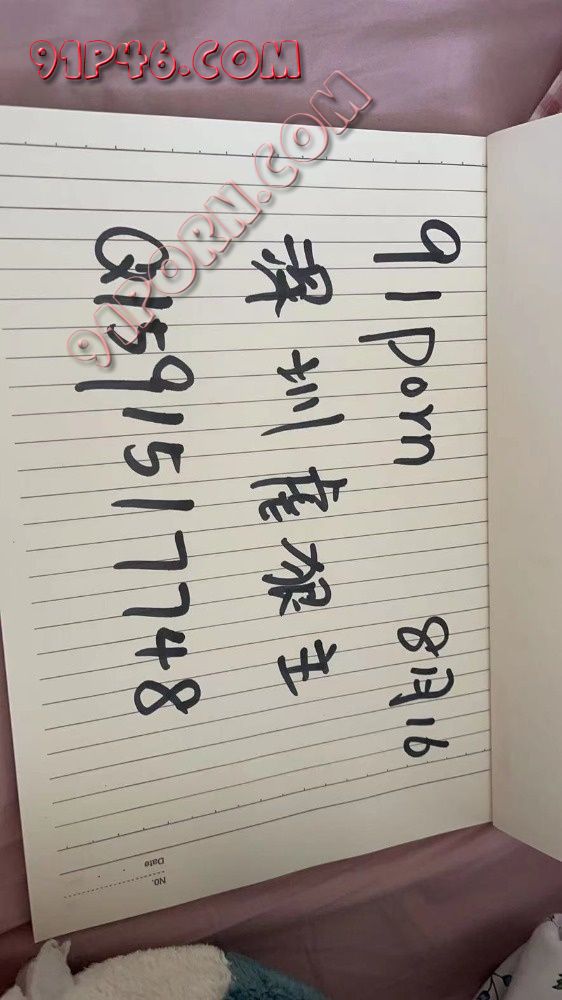 91P46.COM
91PORN.COM
91porn 8月16
深圳狼主
Q1591517748
No.
Date